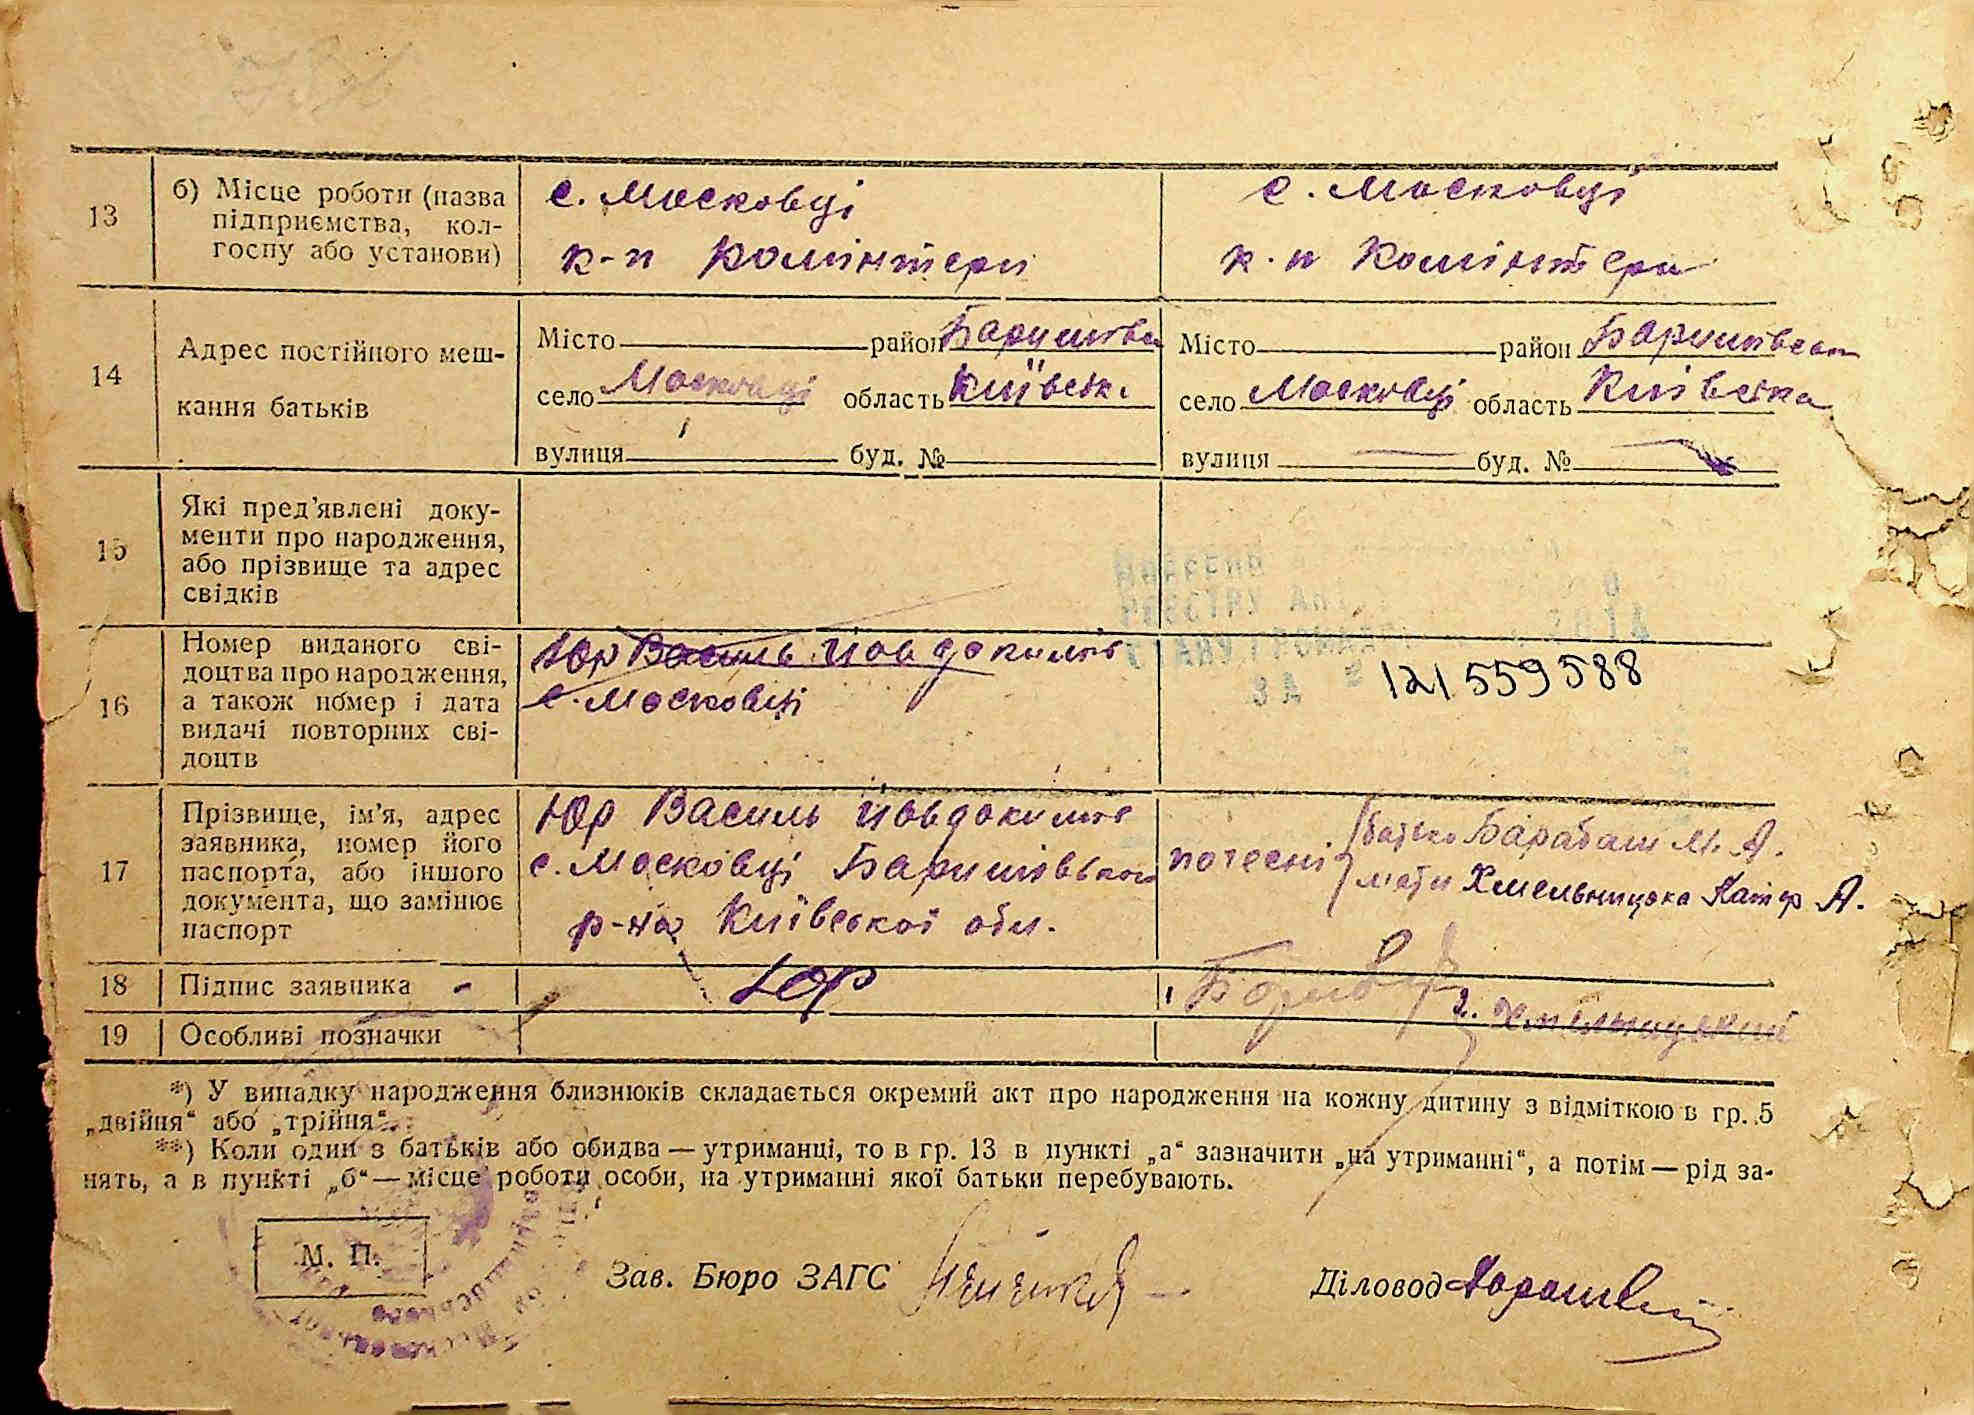 13
б) Місце роботи (назва
підприємства, кол-
госпу або установи)
с. Масковці
к-п Комінтерн
с. Масковці
к-п Комінтерн
14
Адрес постійного меш-
кання батьків
Місто район Баришівськ
село Масковці область Київськ.
вулиця буд. №
Місто район Баришівськ
село Масковці область Київська
вулиця буд. №
15
Які пред’явлені доку-
менти про народження,
або прізвище та адрес
свідків
16
Номер виданого сві-
доцтва про народження,
а також номер і дата
видачі повторних сві-
доцтв
Юр Василь Йовдокимов
с. Масковці
РЕЄСТРУ
СТАНУ ГРОМАД
ЗА № 121559588
17
Прізвище, ім’я, адрес
заявника, номер його
паспорта, або іншого
документа, що замінює
паспорт
Юр Василь Йовдокимов
с. Масковці Баришівського
р-на Київської обл.
батько Барабаш М. А.
мати Хмельницька Катер А.
18
Підпис заявника
Юр
1.
2. Хмельницький
19
Особливі позначки
*) У випадку народження близнюків складається окремий акт про народження на кожну дитину з відміткою в гр. 5
„двійня“ або „трійня“.
**) Коли один з батьків або обидва — утриманці, то в гр. 13 в пункті „а“ зазначити „на утриманні“, а потім — рід за-
нять, а в пункті „б“ — місце роботи особи, на утриманні якої батьки перебувають.
М. П.
Зав. Бюро ЗАГС
Діловод